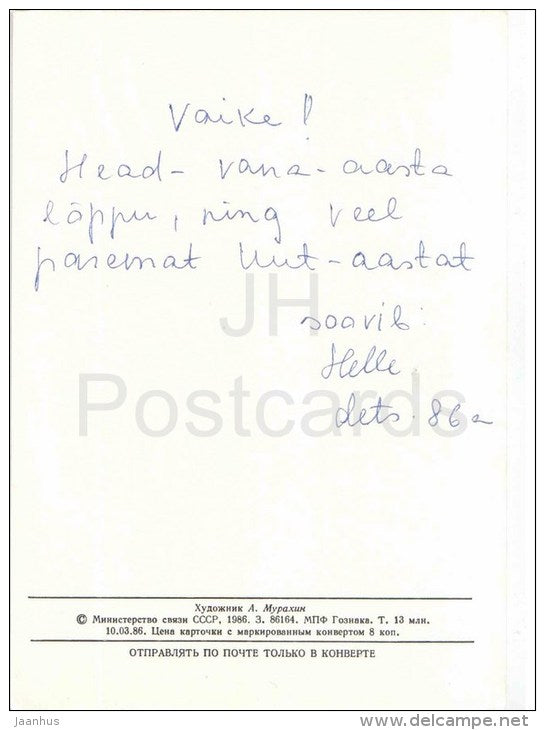 Vaike!
Head- vana-aasta
lõppu, ning veel
paremat Uut-aastat
soovib:
Helle.
dets. 86a
JH
Postcards
Художник А. Мурахин
© Министерство связи СССР, 1986. З. 86164. МПФ Гознака. Т. 13 млн.
10.03.86. Цена карточки с маркированным конвертом 8 коп.
ОТПРАВЛЯТЬ ПО ПОЧТЕ ТОЛЬКО В КОНВЕРТЕ
jaanhus
www.delcampe.net